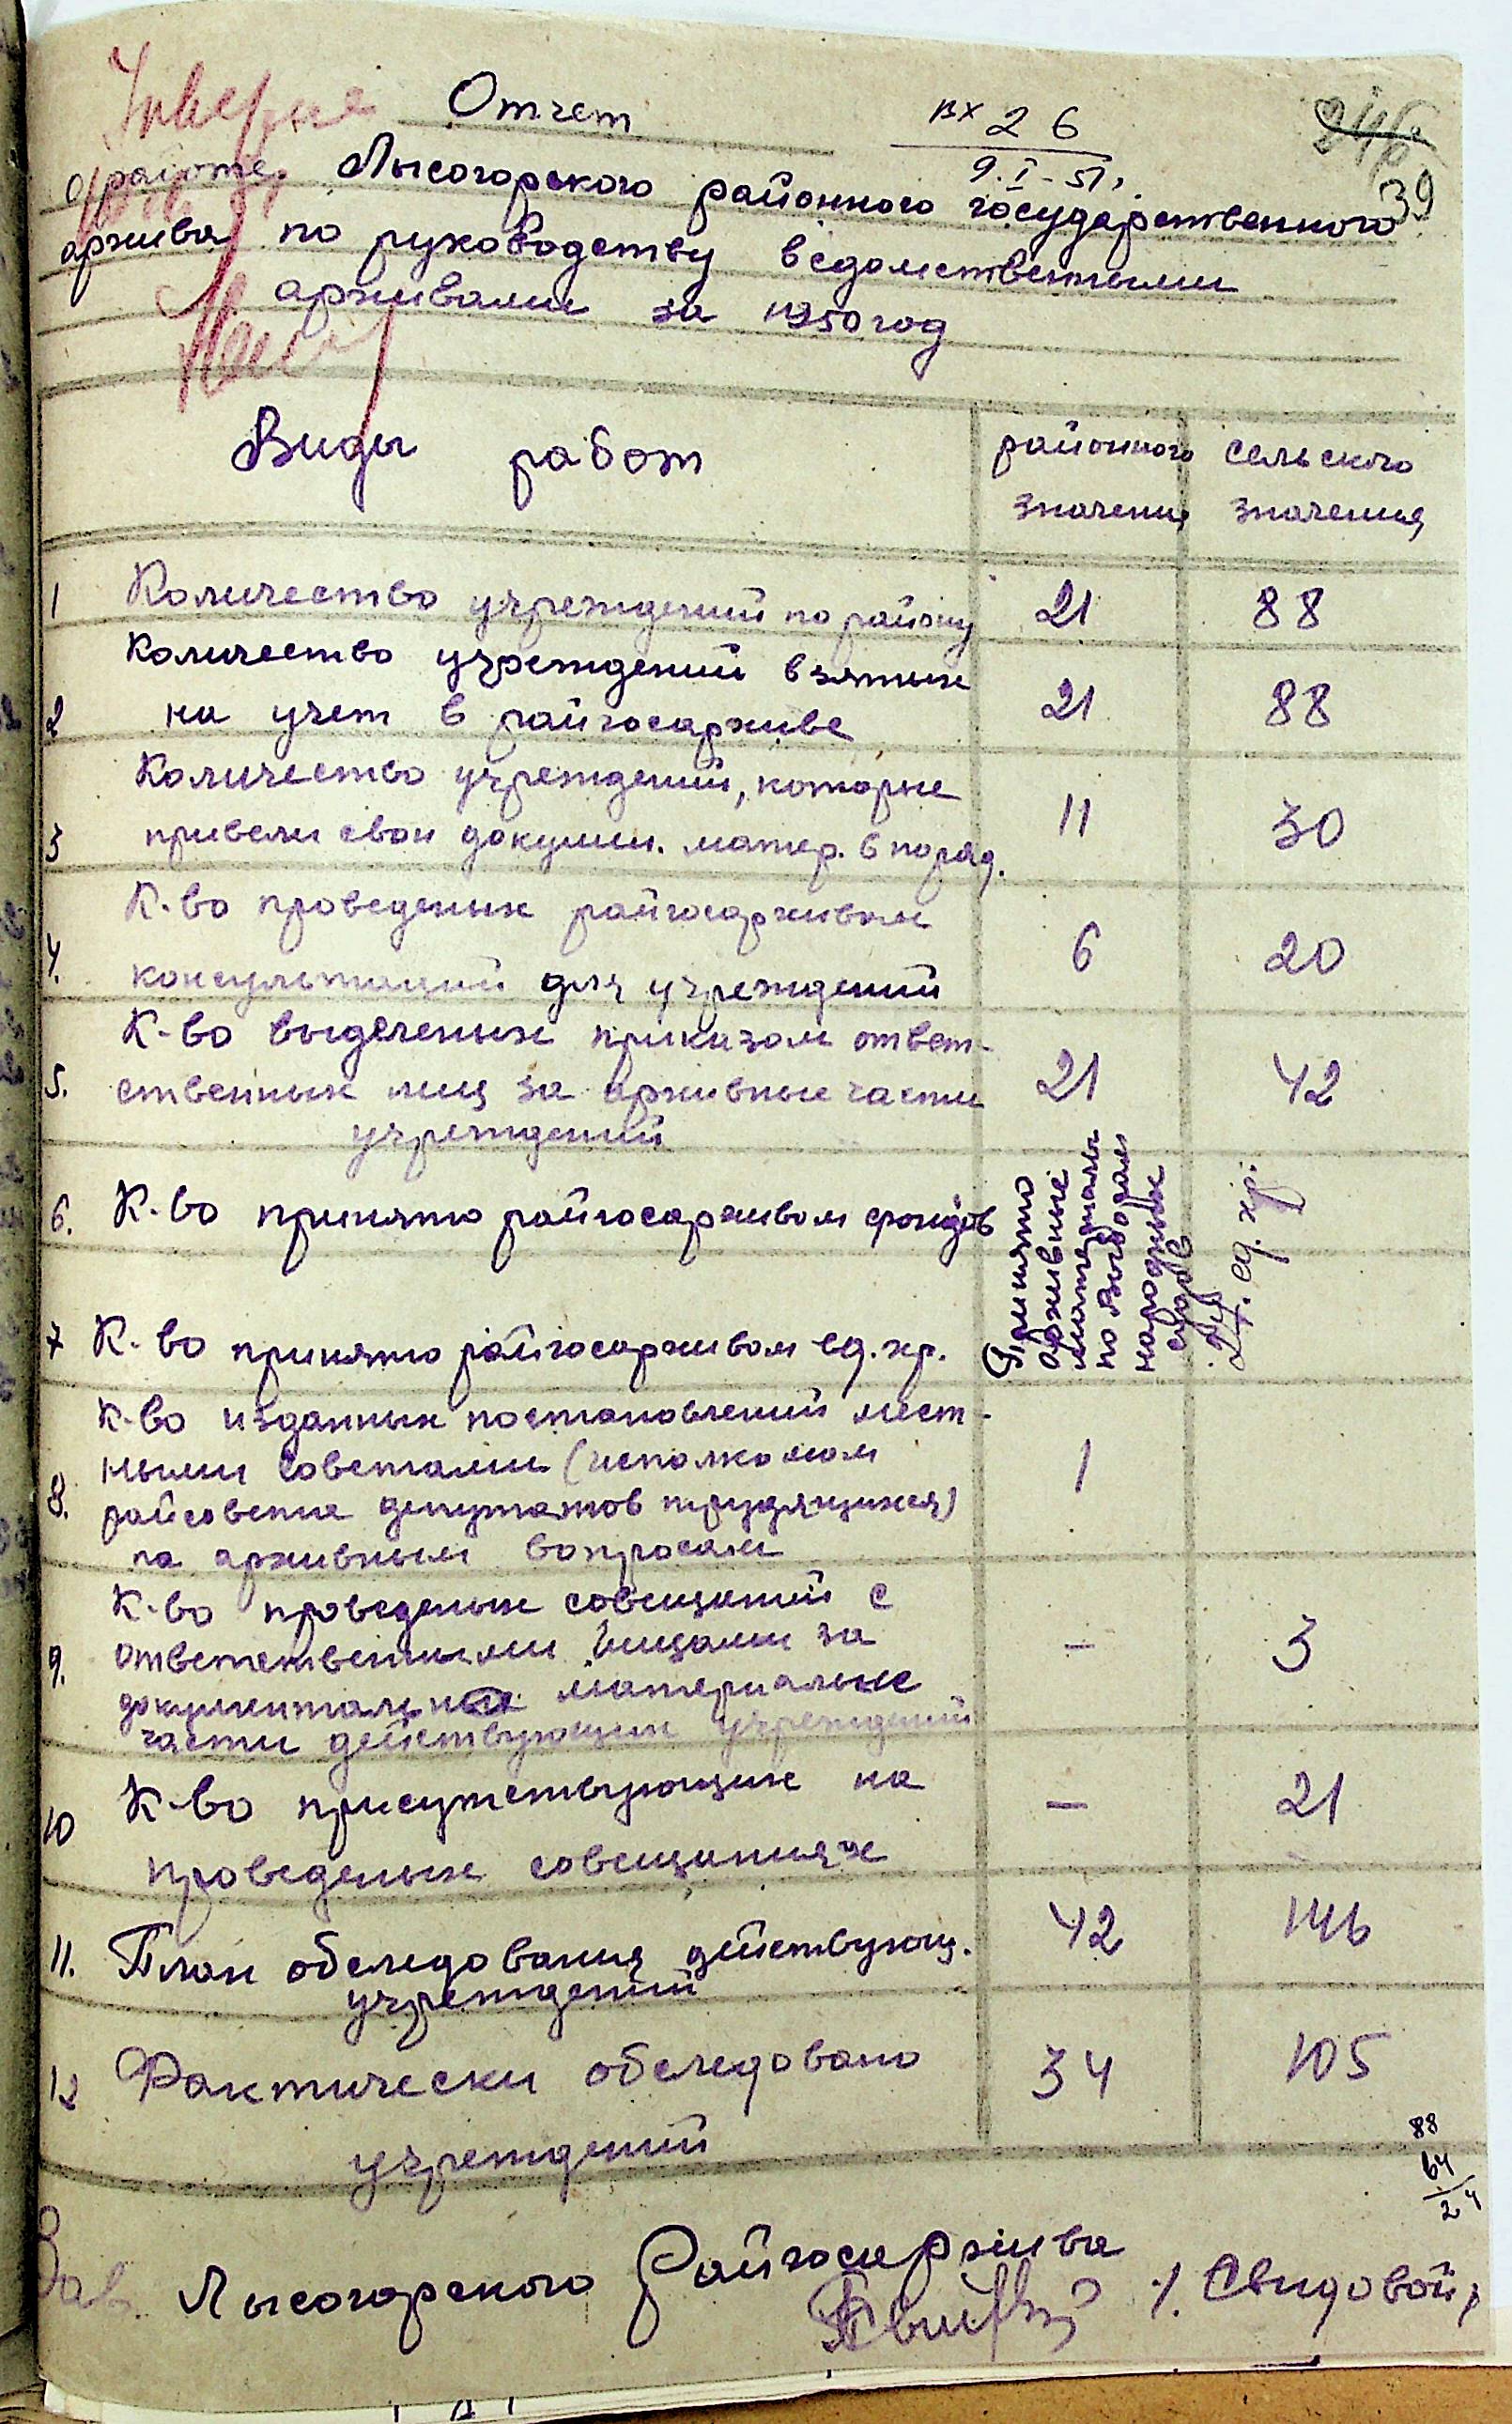 Отчет
вх 26
9.I-51
39
о работе Лысогорского районного государственного
архива по руководству ведомственными
архивами за 1950 год
Виды работ
районного значения
сельского значения
1 Количество учреждений по району 21 88
Количество учреждений взятых
2 на учет в райгосархиве 21 88
Количество учреждений, которые
3 привели свои докумен. матер. в поряд. 11 30
К-во проведеных райгосархивом
4. консультаций для учреждений 6 20
К-во выделеных приказом ответ-
5. ственных лиц за архивные части 21 42
учреждений
6. К-во принято райгосархивом фондов
7 К-во принято райгосархивом ед. хр.
Принято
архивные
материалы
по выводам
народных
судов
24. ед. хр.
К-во изданных постановлений мест-
ными советами (исполкомом
8. райсовета депутатов трудящихся) 1
па архивным вопросам
К-во проведеных совещаний с
9. ответственными лицами за – 3
документальные материальные
части действующих учреждений
10 К-во присутствующих на – 21
проведеных совещаниях
11. План обследования действующ. 42 146
учреждений
12 Фактически обследовано 34 105
учреждений
88
64
24
Зав. Лысогорского Райгосархива
/. Свидовой/